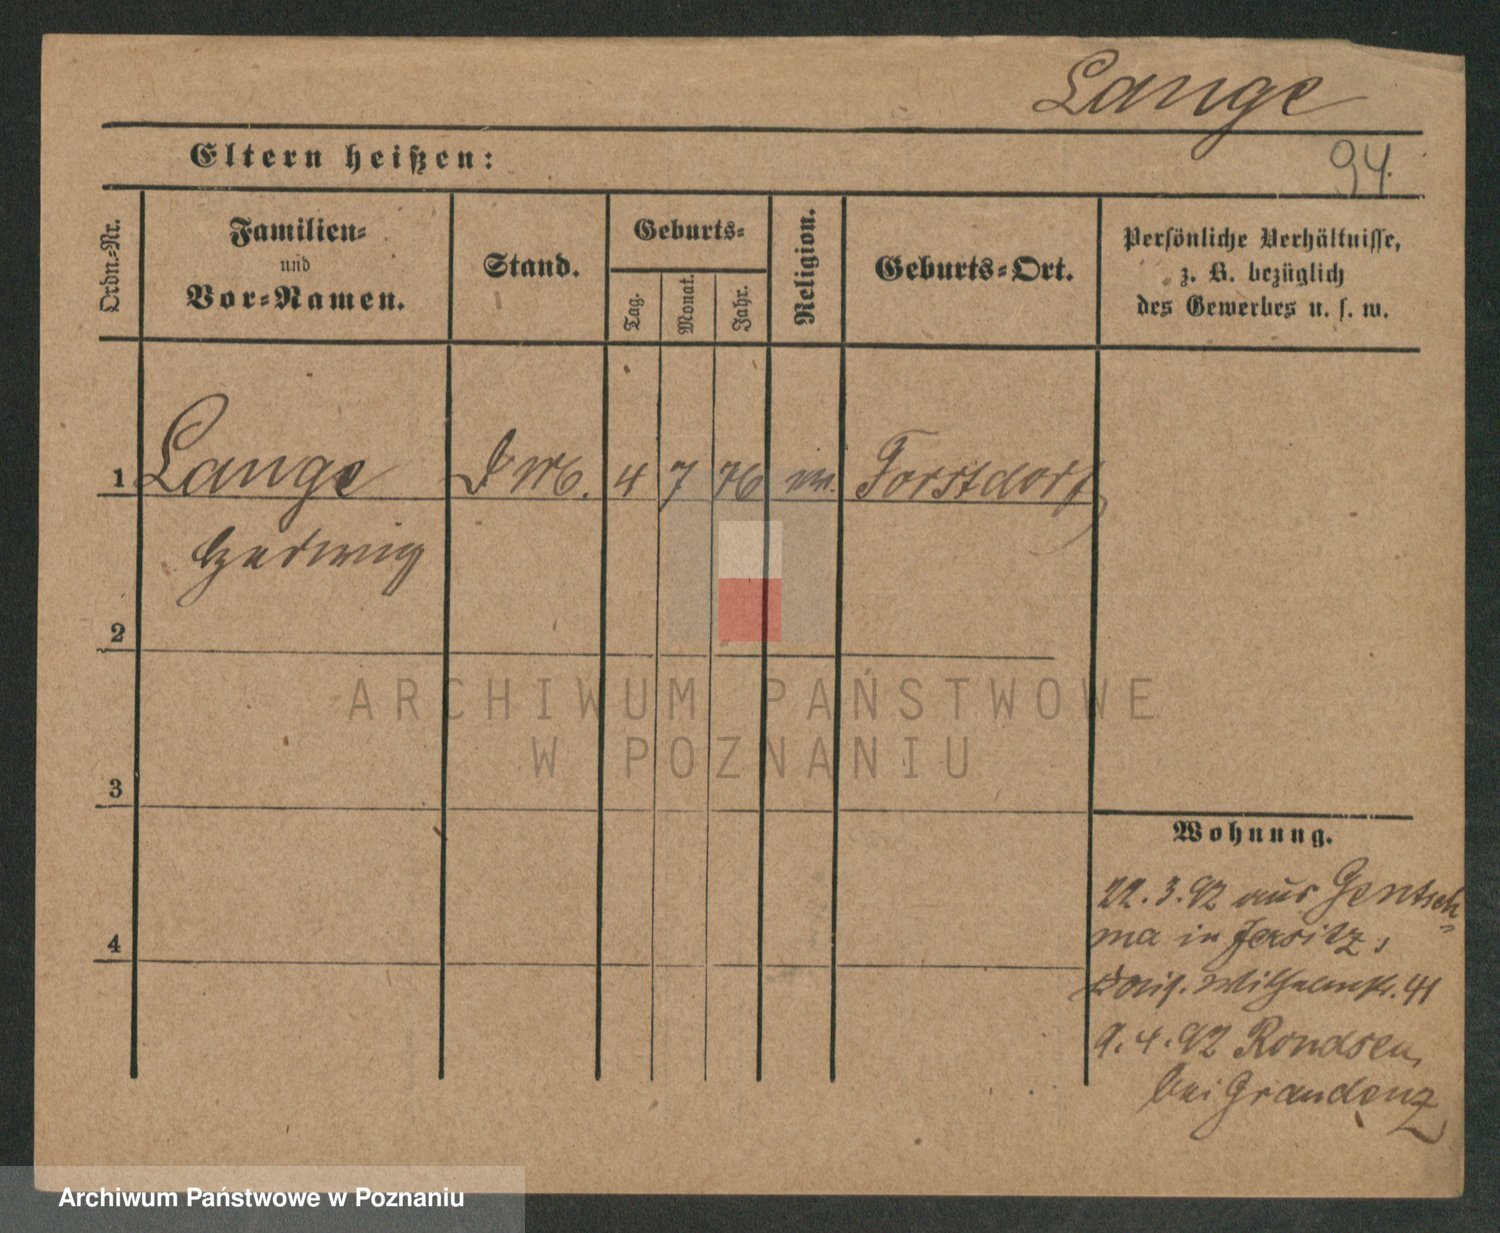 Lange
Eltern heißen:
94.
Ordn.-Nr.
Familien-
und
Vor-Namen.
Stand.
Geburts-
Tag.
Monat.
Jahr.
Religion.
Geburts-Ort.
Persönliche Verhältnisse,
z. B. bezüglich
des Gewerbes u. s. w.
1 Lange 4 7 76 Forstdorf
Hedwig
2
ARCHIWUM PAŃSTWOWE
W POZNANIU
3
Wohnung.
22.3.92 aus Gentsch-
ma in Jersitz,
Wilhelmstr. 41
4
9.4.92 Rondsen
bei Graudenz
Archiwum Państwowe w Poznaniu